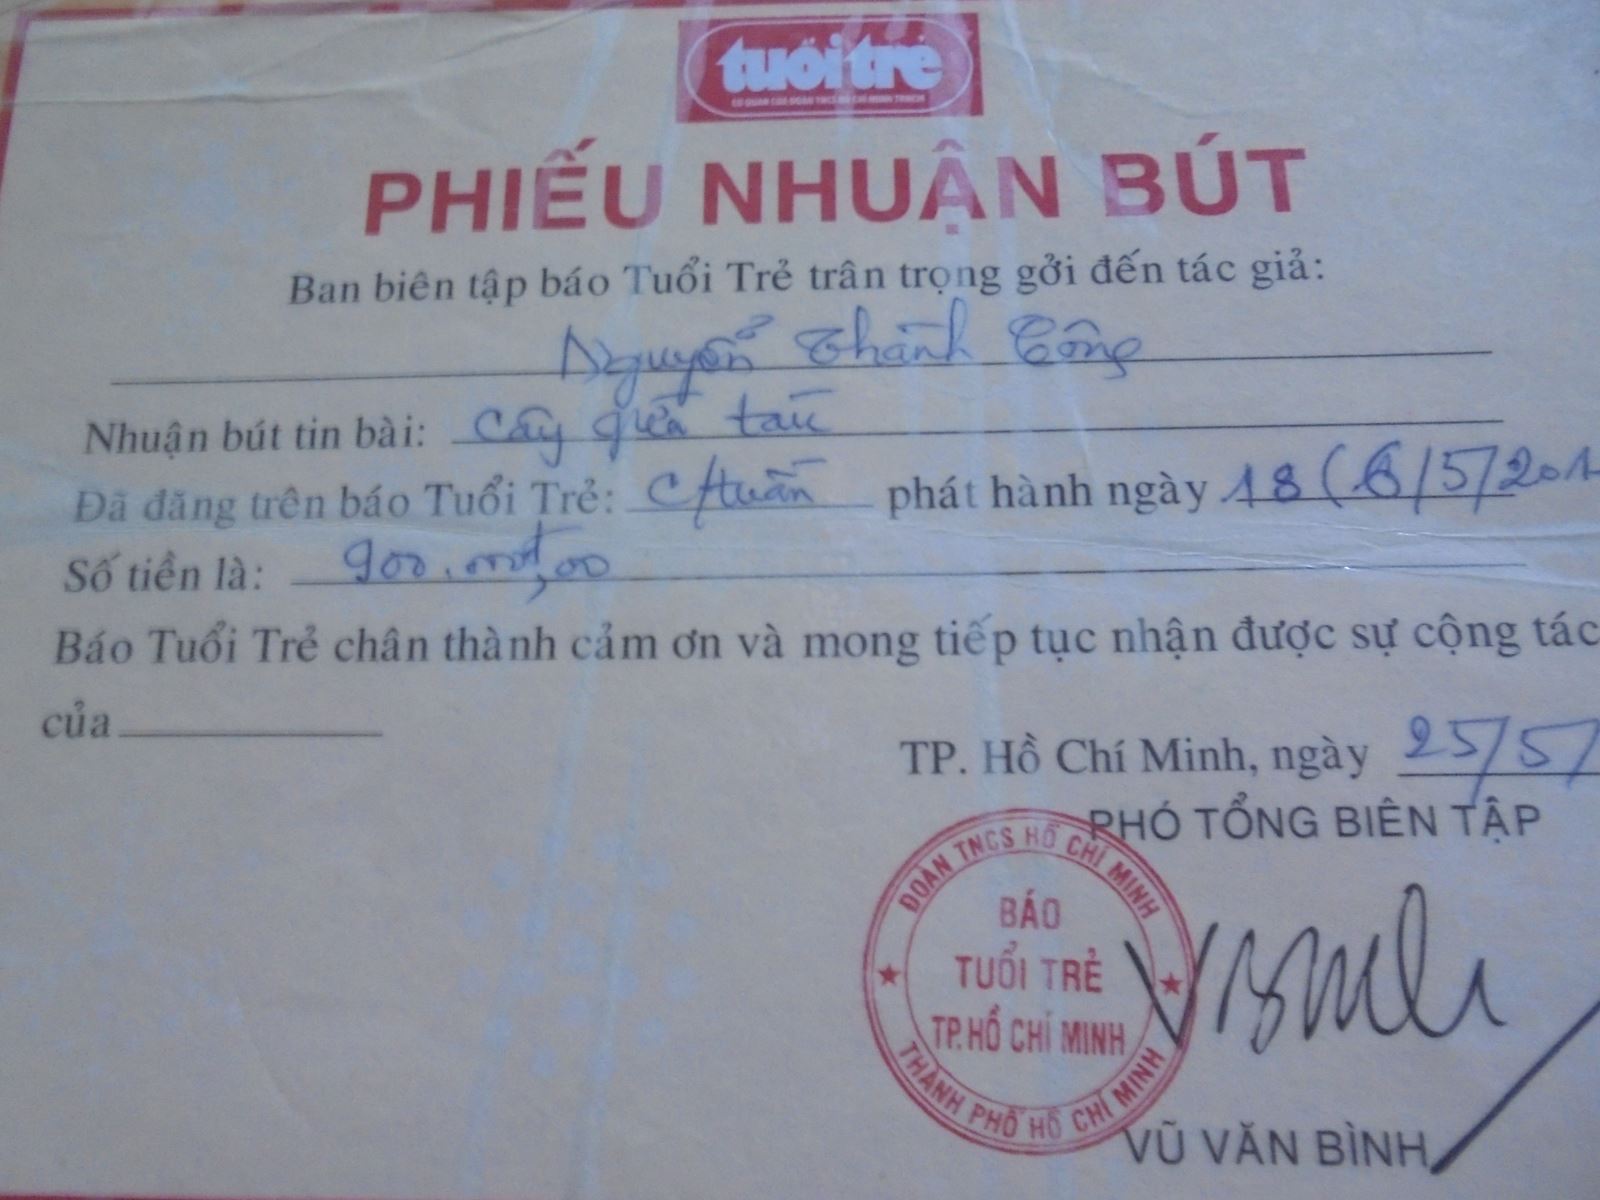 tuổi trẻ
CƠ QUAN CỦA ĐOÀN TNCS HỒ CHÍ MINH TPHCM
PHIẾU NHUẬN BÚT
Ban biên tập báo Tuổi Trẻ trân trọng gởi đến tác giả:
Nguyễn Thành Công
Nhuận bút tin bài: Cây giữa tàu
Đã đăng trên báo Tuổi Trẻ: C/tuần phát hành ngày 18 (6/5/201
Số tiền là: 900.000đ,00
Báo Tuổi Trẻ chân thành cảm ơn và mong tiếp tục nhận được sự cộng tác
của
TP. Hồ Chí Minh, ngày 25/5/
PHÓ TỔNG BIÊN TẬP
ĐOÀN TNCS HỒ CHÍ MINH
BÁO
TUỔI TRẺ
TP. HỒ CHÍ MINH
THÀNH PHỐ HỒ CHÍ MINH
VŨ VĂN BÌNH